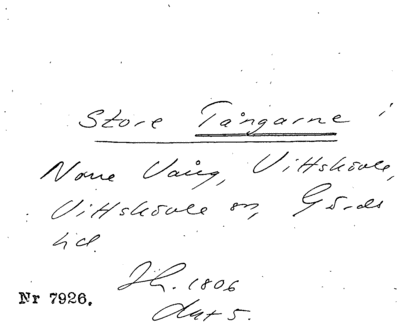 Store Tångarne i
Norre Vång, Vittskövle,
Vittskövle sn, Gärds
hd.
Jh. 1806
Akt 5.
Nr 7926.